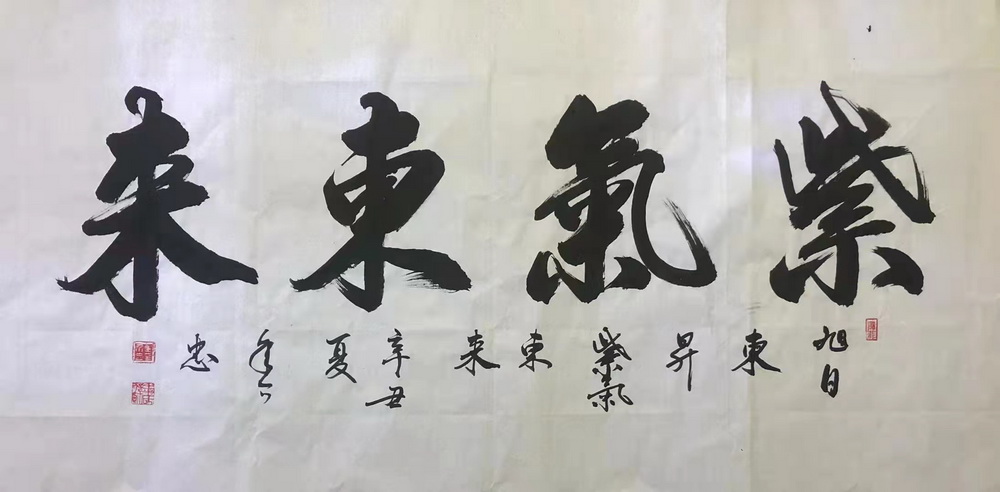 紫氣東来
旭日東昇紫氣東来辛丑夏
忠